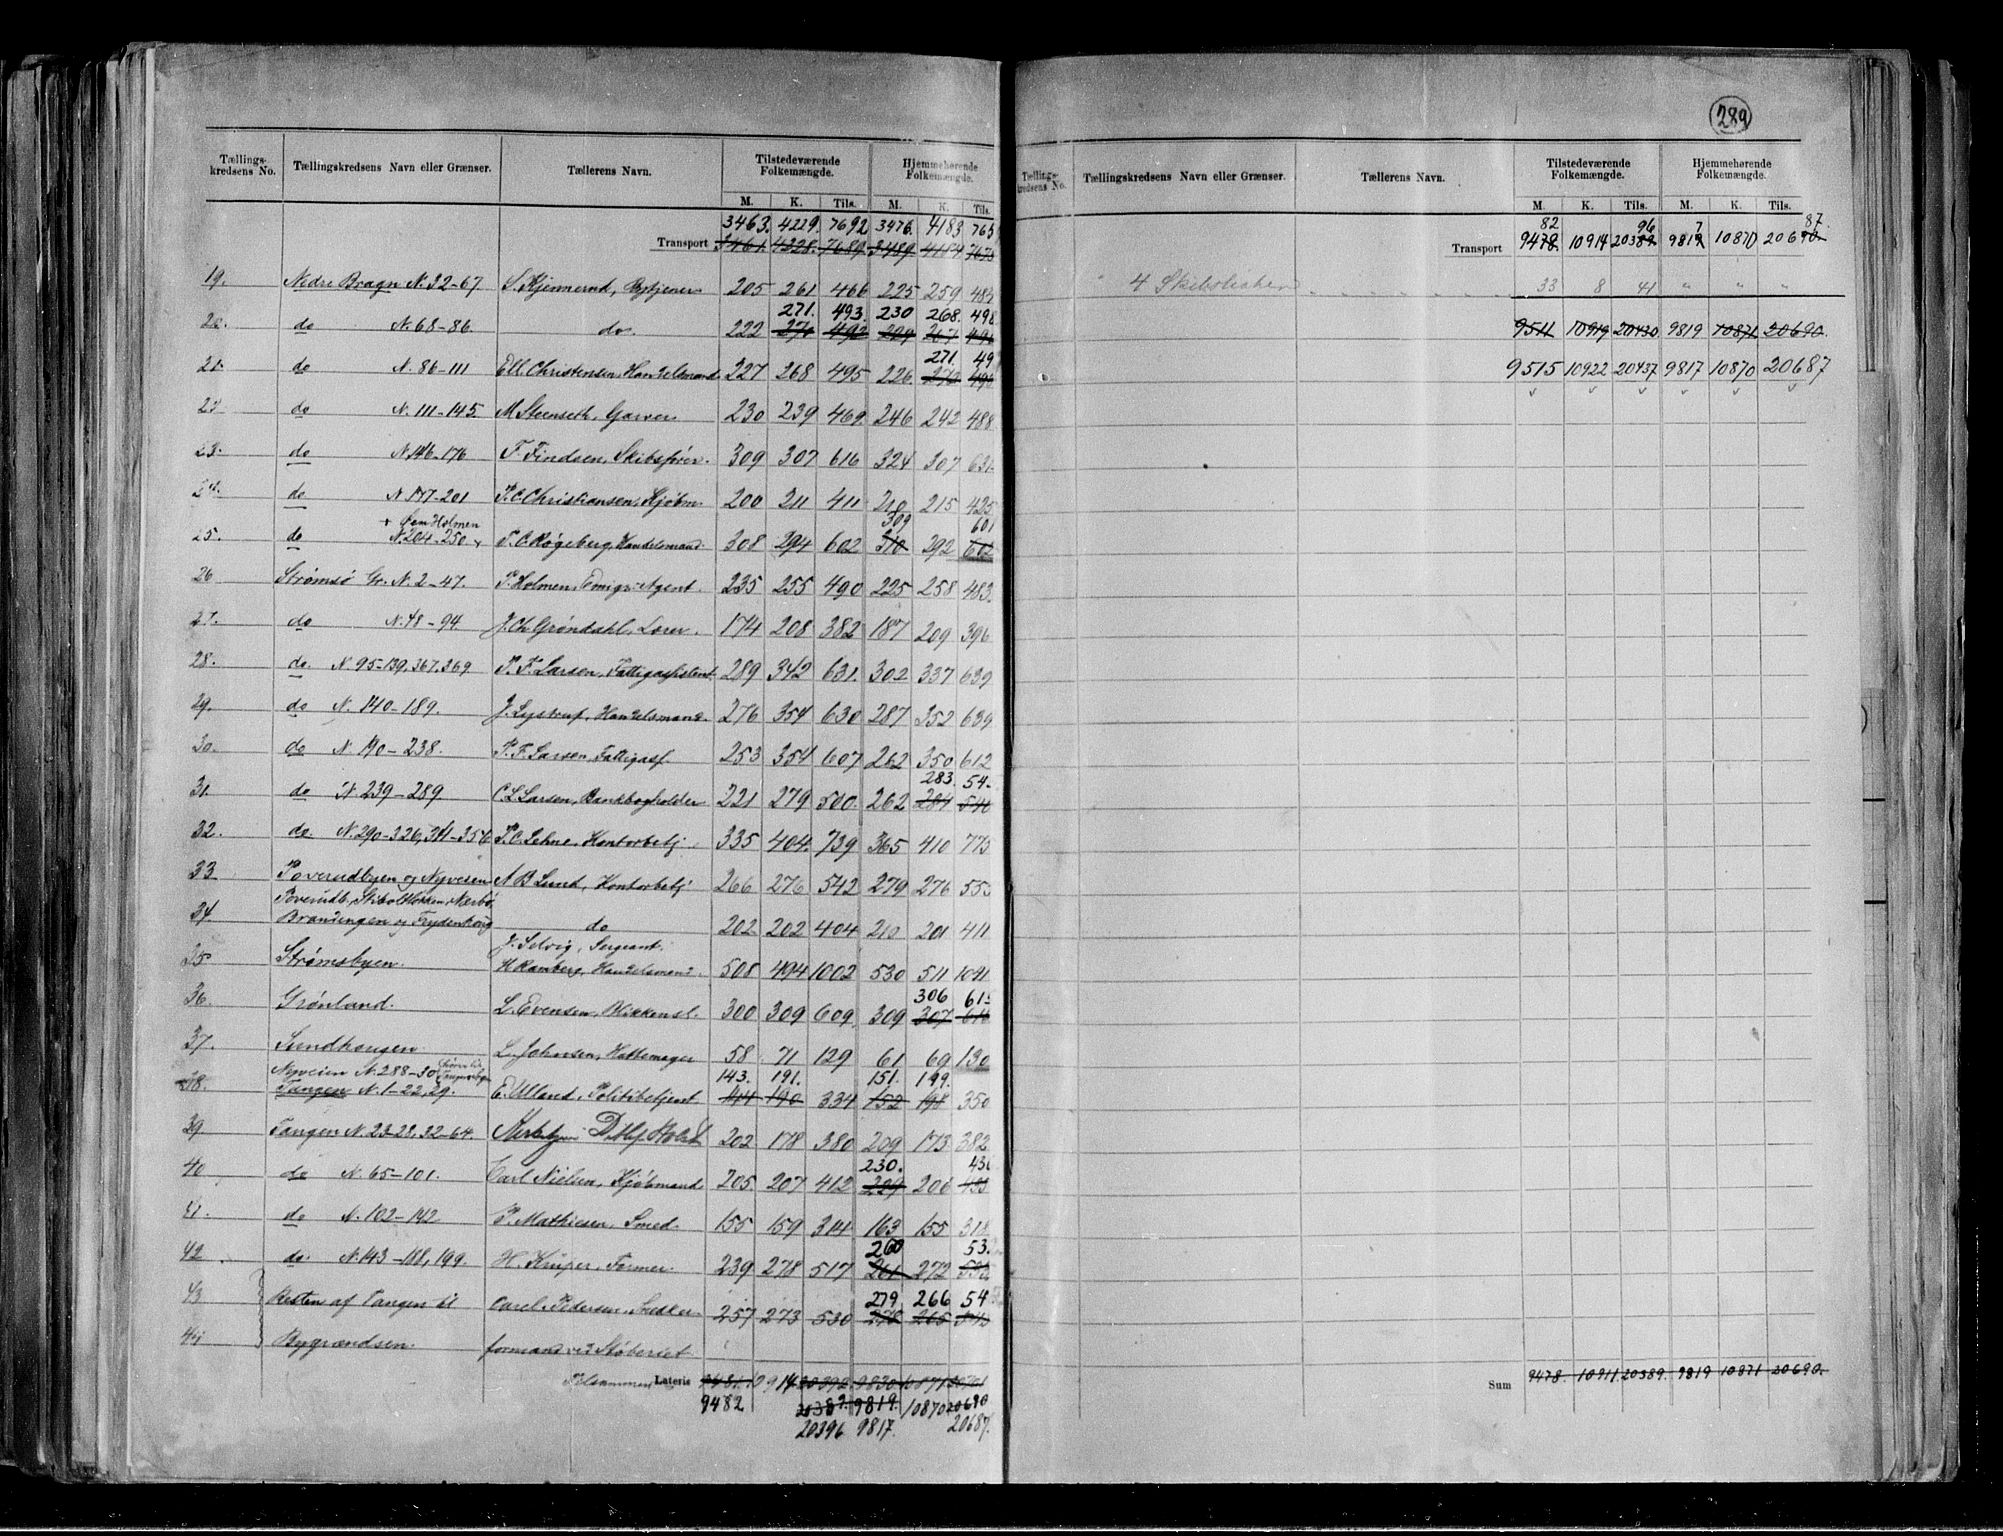 289
Tællings-kredsens No. Tællingskredsens Navn eller Grænser. Tællerens Navn. Tilstedeværende Folkemængde. Hjemmehørende Folkemængde.
M. K. Tils. M. K. Tils.
3463. 4229. 7692 3476. 4183 765
Transport 3461. 4228. 7689 3489 4184 7673
19. Nedre Bragn N. 32-67 S. Kjennerud, Bytjener 205 261 466 225 259 484
271. 493. 230 268. 498
20. do N. 68-86 do. 222 270 492 229 267 496
271. 49
21. do N. 86-111 Ell. Christensen, Handelsmand 227 268 495 226 270 496
22 do N. 111-145 M Steenseth, Garver 230 239 469. 246 242 488
23. do N. 146-176 F. Findsen, Skibsfører. 309 307 616 324 307 631.
24. do N. 177-201 P. C. Christiansen, Kjøbm 200 211 411 210 215 425
+ Øen Holmen 309 601
25. do N. 204-250 P. C. Røgeberg, Handelsmand 308 294 602 310 292 602
26 Strømsø Gr. N. 2-47. P. Holmen, Emigr. Agent. 235 255 490 225 258 483.
27. do N. 48-94 J. Ch. Grøndahl, Lærer. 174 208 382 187 209 396
28. do. N. 95-139, 367, 369 P. F. Larsen, Fattigassistent 289 342 631. 302 337 639
29. do N. 140-189. J. Lystrup, Handelsmand. 276 354 630 287 352 639
30. do N. 190-238. P. F. Larsen, Fattigass. 253 354 607 262 350 612
283 54.
31. do N 239-289. C. L. Larsen, Bankbogholder 221 279 500. 262 284 546
32. do. N. 290-326, 341-356 P. C. Lehne, Kontorbetj 335 404. 739 365 410 775
33 Poverudbyen og Nyvesen A B Lund, Kontorbetj 266 276 542 279 276 555
34 Brandengen og Frydenhaug do 202 202 404 210 201 411
J. Selvig, Sergeant.
35 Strømsbyen. H. Ramberg, Handelsmand. 508 494 1002 530 511 1041.
306 615
36. Grønland. L. Evensen, Blikkensl. 300 309 609 309 307 616
37. Sundhaugen L. Johansen, Hattemager 58 71 129 61 69 130
Nyveien N. 288-30 143. 191. 151. 199.
38. Tangen N. 1-22, 29. E. Ulland, Politibetjent 144 190 334 152 198 350
39 Tangen N. 23-28, 32-64. Holst 202 178 380 209 173 382
230. 436
40 do N. 65-101. Carl Nielsen, Kjøbmand 205 207 412 229 206 435
41. do N. 102-142 P. Mathiesen, Smed. 155 159 314 163 155 318
260 53.
42 do. N. 143-188, 199. H. Kruper, Former. 239 278 517 261 272 533
279 266 54
43 Resten af Tangen til Carel Pedersen, Snedker 257 273 530 278 265 543
44 Bygrændsen. formand ved Støberiet
Tilsammen Lateris 9481. 10914 20392 9830 10871 20701
9482 20389. 9819. 10870 20690
20396 9817. 20687.
Tællings-kredsens No. Tællingskredsens Navn eller Grænser. Tællerens Navn. Tilstedeværende Folkemængde. Hjemmehørende Folkemængde.
M. K. Tils. M. K. Tils.
82 96 7 87.
Transport 9478. 10914 20389 9819 10870 20690.
" 4 Skibslister 33 8 41 " " "
9511 10919 20430 9819 10871 20690.
9515 10922 20437 9817 10870 20687
Sum 9478. 10911 20389. 9819 10871 20690.